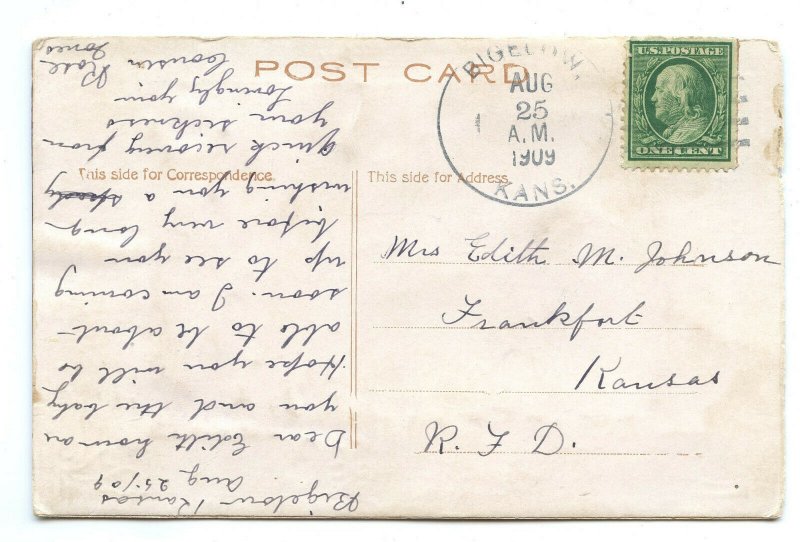 POST CARD
BIGELOW,
AUG
25
A.M.
1909
KANS.
1
U.S. POSTAGE
ONE CENT
This side for Correspondence.
This side for Address.
Mrs Edith M. Johnson
Frankfort
Kansas
R. F. D.
Bigelow Kansas
Aug 25/09
Dear Edith how are
you and the baby
Hope you will be
able to be about
soon. I am coming
up to see you
before very long
wishing you a speedy
quick recovery from
your sickness
Lovingly your
Cousin
Rose
Jones